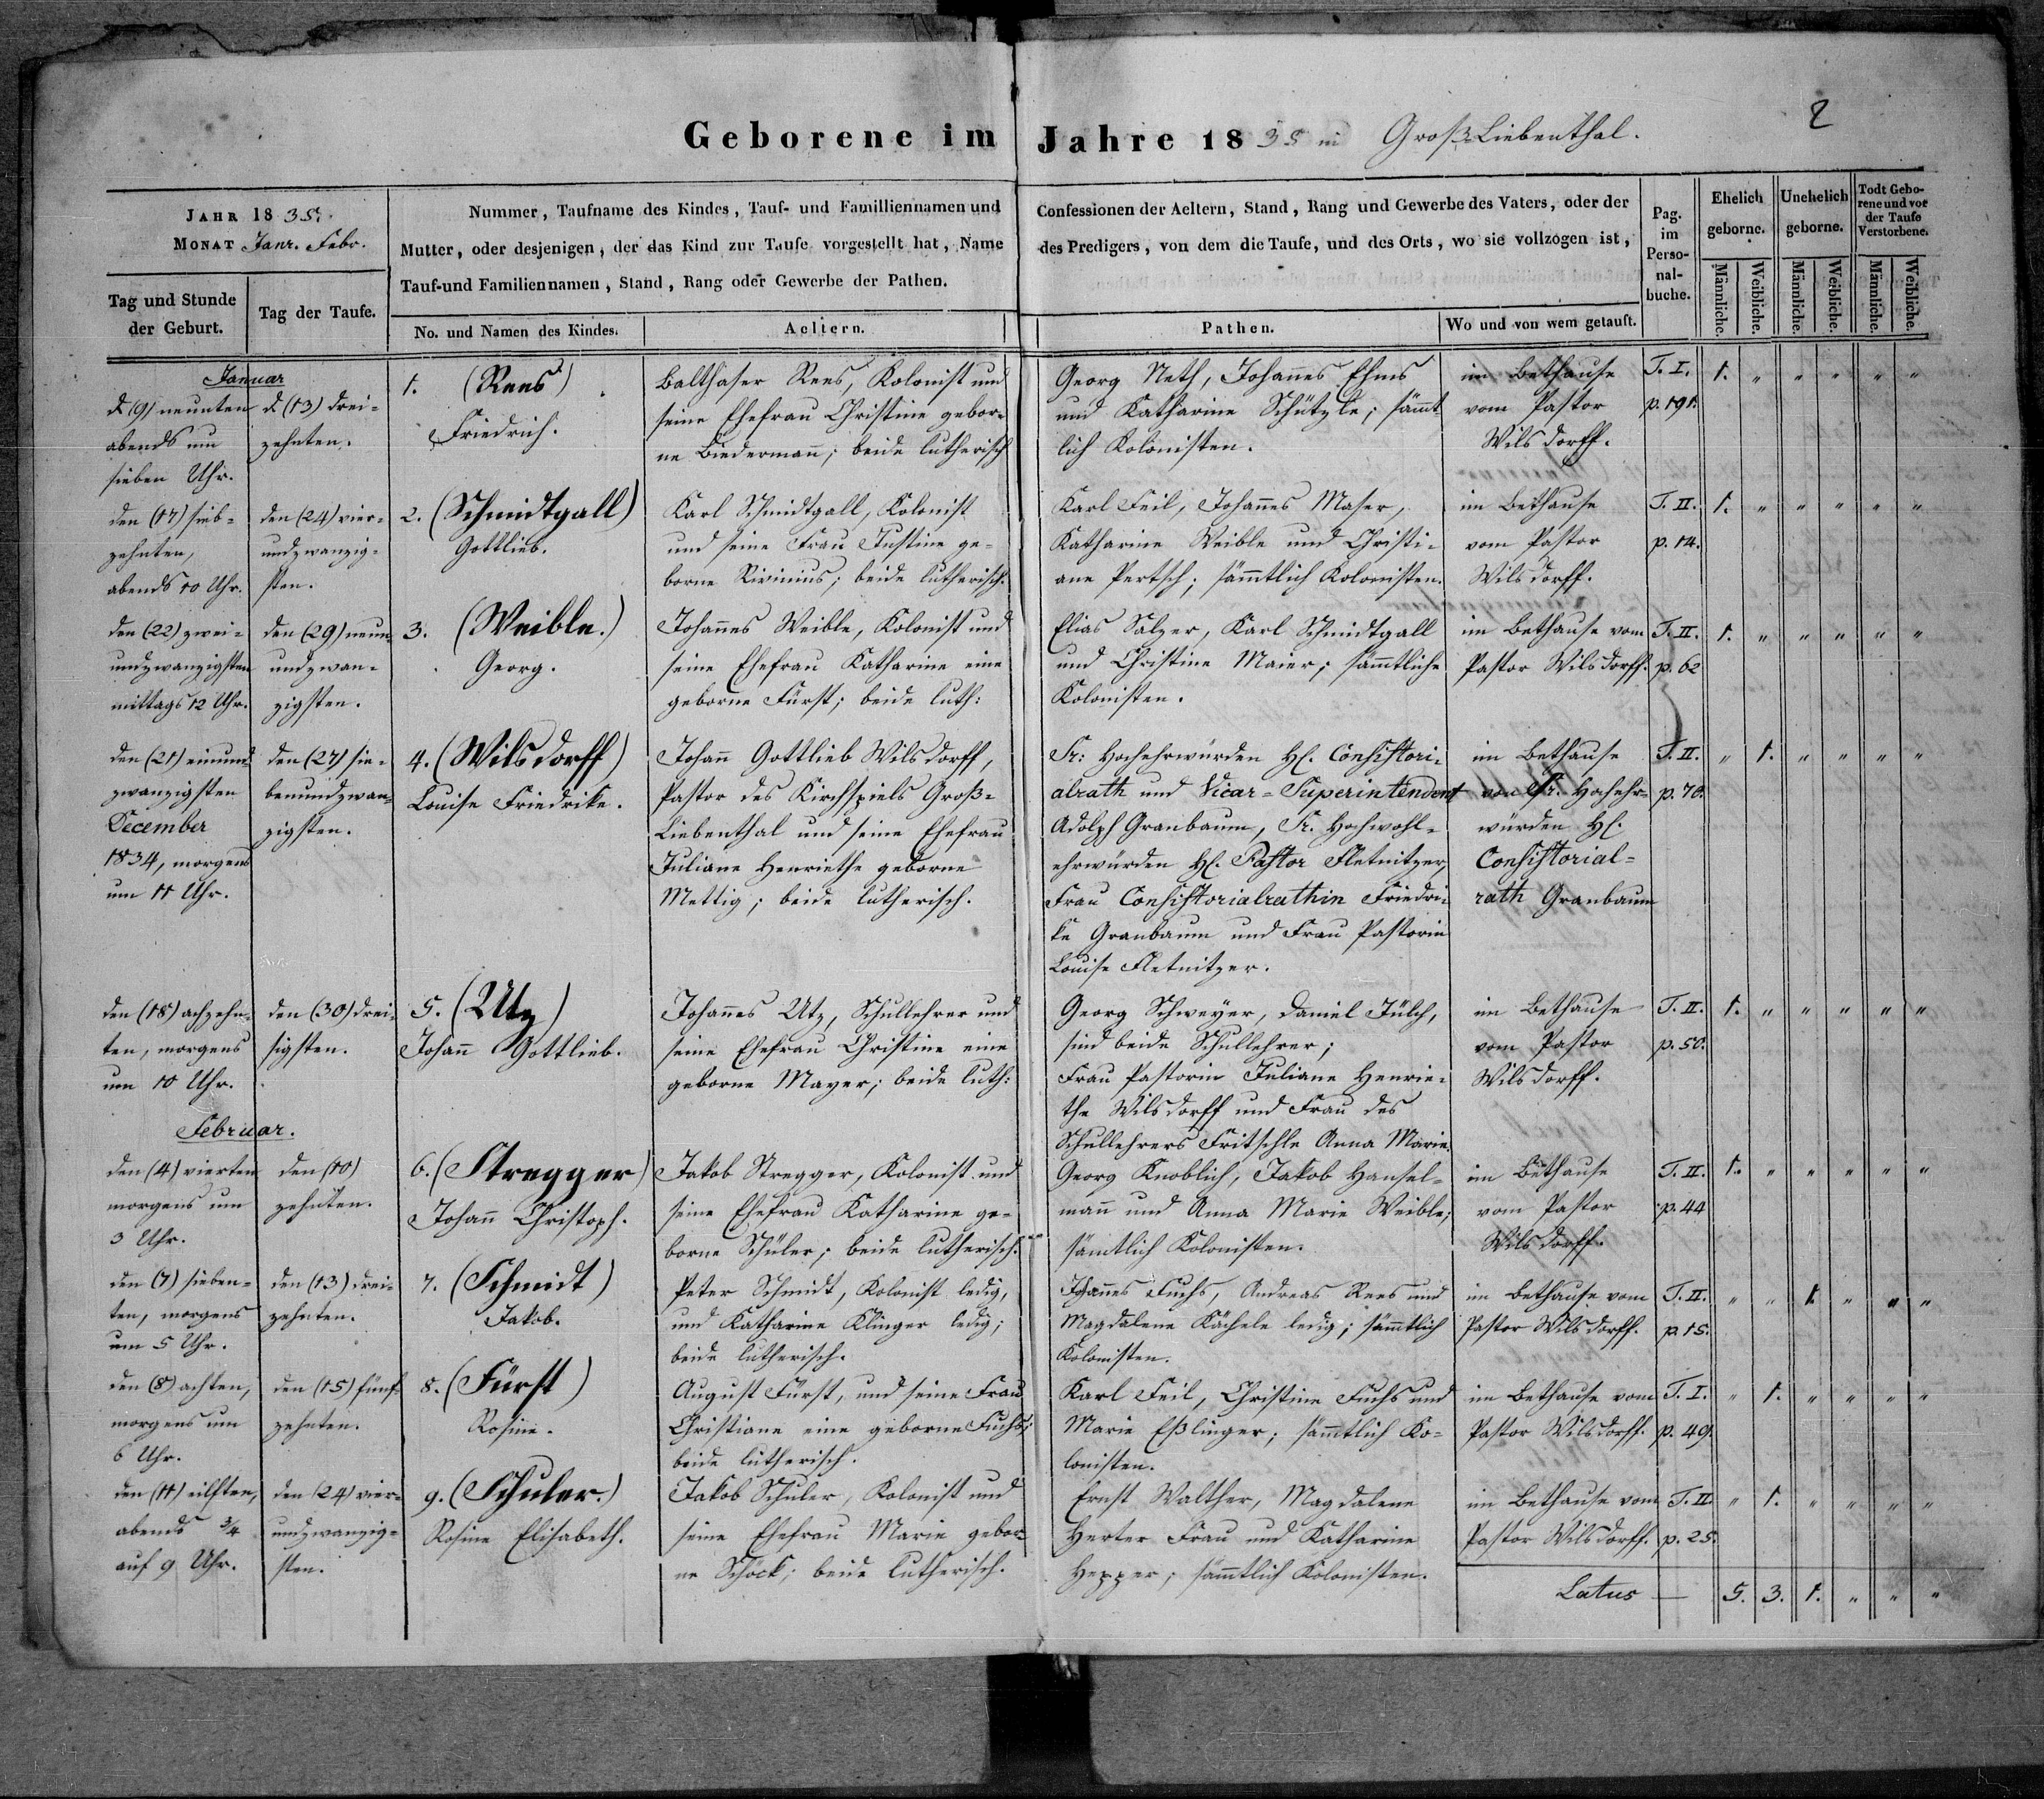 2
Geborene im Jahre 1835 in GroßLiebenthal.
JAHR 1835.
MONAT Janr. Febr.
Tag und Stunde
der Geburt.
Tag der Taufe.
Nummer, Taufname des Kindes, Tauf- und Familliennamen und
Mutter, oder desjenigen, der das Kind zur Taufe vorgestellt hat, Name
Tauf-und Familiennamen, Stand, Rang oder Gewerbe der Pathen.
No. und Namen des Kindes.
Aeltern.
Confessionen der Aeltern, Stand, Rang und Gewerbe des Vaters, oder der
des Predigers, von dem die Taufe, und des Orts, wo sie vollzogen ist,
Pathen.
Wo und von wem getauft.
Pag.
im
Perso-
nal-
buche.
Ehelich
geborne.
Unehelich
geborne.
Todt Gebo-
rene und vor
der Taufe
Verstorbene.
Männliche.
Weibliche.
Männliche.
Weibliche.
Männliche.
Weibliche.
Januar
d. (9) neunten
abends um
sieben Uhr.
d. (13) drei-
zehnten.
1. (Rees)
Friedrich.
Balthaser Rees, Kolonist und
seine Ehefrau Christine gebor-
ne Biedermann; beide lutherisch
Georg Neth, Johannes Ehms
und Katharine Schützle; sämmt
lich Kolonisten.
im Bethause
vom Pastor
Wilsdorff.
T. I.
p. 191.
1. " " " " "
den (17) sieb-
zehnten,
abends 10 Uhr.
den (24) vier-
undzwanzig-
sten.
2. (Schmidtgall)
Gottlieb.
Karl Schmidtgall, Kolonist
und seine Frau Justine ge-
borne Rivinius; beide lutherisch.
Karl Feil, Johannes Maser,
Katharine Weible und Christi-
ane Pertsch; sämmtlich Kolonisten.
im Bethause
vom Pastor
Wilsdorff.
T. II.
p. 14.
1. " " " " "
den (22) zwei-
undzwanzigsten
mittags 12 Uhr.
den (29) neun
undzwan-
zigsten.
3. (Weible.)
Georg.
Johannes Weible, Kolonist und
seine Ehefrau Katharine eine
geborne Fürst; beide luth:
Elias Salzer, Karl Schmidtgall
und Christine Maier; sämmtliche
Kolonisten.
im Bethause vom
Pastor Wilsdorff.
T. II.
p. 62
1. " " " " "
den (21) einund
zwanzigsten
December
1834, morgens
um 11 Uhr.
den (27) sie-
benundzwan-
zigsten.
4. (Wilsdorff)
Louise Friedrike.
Johann Gottlieb Wilsdorff,
Pastor des Kirchspiels Groß-
Liebenthal und seine Ehefrau
Juliane Henriethe geborne
Mettig; beide lutherisch.
Sr: Hochehrwürden H. Consistori-
alrath und Vicar-Superintendent
Adolph Granbaum, Sr. Hochwohl-
ehrwürden H. Pastor Fletnitzer,
Frau Consistorialrathin Friedri-
ke Granbaum und Frau Pastorin
Louise Fletnitzer.
im Bethause
von Sr. Hochehr-
würden H.
Consistorial-
rath Granbaum
T. II.
p. 70.
" 1. " " " "
den (18) achzehn-
ten, morgens
um 10 Uhr.
den (30) drei-
sigsten.
5. (Utz)
Johann Gottlieb.
Johannes Utz, Schullehrer und
seine Ehefrau Christine eine
geborne Mayer; beide luth:
Georg Schweyer, Daniel Jülch,
sind beide Schullehrer;
Frau Pastorin Juliane Henrie-
the Wilsdorff und Frau des
Schullehrers Fritschle Anna Marie.
im Bethause
vom Pastor
Wilsdorff.
T. II.
p. 50.
1. " " " " "
Februar.
den (4) vierten
morgens um
3 Uhr.
den (10)
zehnten.
6. (Stregger)
Johann Christoph.
Jakob Stregger, Kolonist und
seine Ehefrau Katharine ge-
borne Schüler; beide lutherisch.
Georg Knoblich, Jakob Hansel-
mann und Anna Marie Weible;
sämtlich Kolonisten.
im Bethause
vom Pastor
Wilsdorff.
T. II.
p. 44
1. " " " " "
den (7) sieben-
ten, morgens
um 5 Uhr.
den (13) drei-
zehnten.
7. (Schmidt)
Jakob.
Peter Schmidt, Kolonist ledig,
und Katharine Klinger ledig;
beide lutherisch.
Johannes Fuchs, Andreas Rees und
Magdalene Kächele ledig; sämmtlich
Kolonisten.
im Bethause vom
Pastor Wilsdorff.
T. II.
p. 15.
" " 1. " " "
den (8) achten,
morgens um
6 Uhr.
den (15) fünf-
zehnten.
8. (Fürst)
Rosine.
August Fürst, und seine Frau
Christiane eine geborne Fuchs;
beide lutherisch.
Karl Feil, Christine Fuchs und
Marie Eßlinger; sämmtlich Ko-
lonisten.
im Bethause vom
Pastor Wilsdorff.
T. I.
p. 49.
" 1. " " " "
den (11) eilften,
abends 3/4
auf 9 Uhr.
den (24) vier-
undzwanzig-
sten.
9. (Schuler.)
Rosine Elisabeth.
Jakob Schüler, Kolonist und
seine Ehefrau Marie gebor-
ne Schöck; beide lutherisch.
Ernst Walther, Magdalene
Herter Frau und Katharine
Hepper; sämmtlich Kolonisten.
im Bethause vom
Pastor Wilsdorff.
T. II.
p. 25.
" 1. " " " "
Latus — 5. 3. 1. " " "